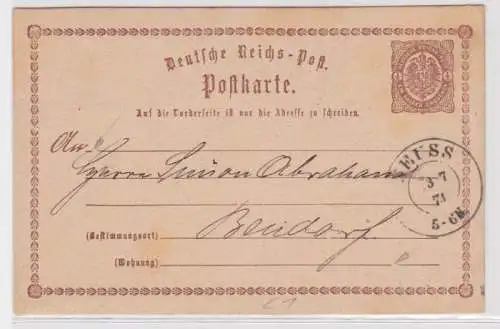 Deutsche Reichs-Post.
Postkarte.
Auf die Vorderseite ist nur die Adresse zu schreiben.
An
Herrn Simon Abraham
NEUSS
3 7
5-6N.
Bendorf
(Bestimmungsort)
(Wohnung)